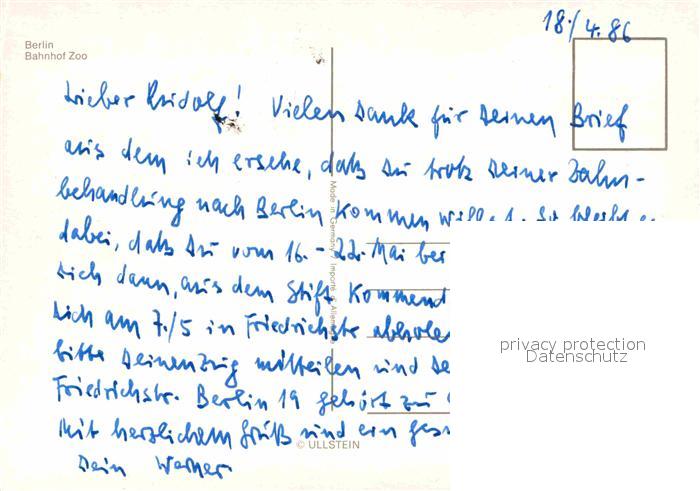 18./4.86
Berlin
Bahnhof Zoo
Lieber Rudolf! Vielen Dank für Deinen Brief
aus dem ich ersehe, daß Du trotz Deiner Zahn-
behandlung nach Berlin kommen willst. So bleibt es
dabei, daß Du vom 16. - 22. Mai bei
Dich dann, aus dem Stift kommend
Dich am 7./5 in Friedrichstr abholen
bitte Deinen Zug mitteilen und
Friedrichstr. Berlin 19 gehört zu
Mit herzlichem Gruß und ein
Dein Werner
Made in Germany / Importé d'Allemagne
© ULLSTEIN
privacy protection
Datenschutz